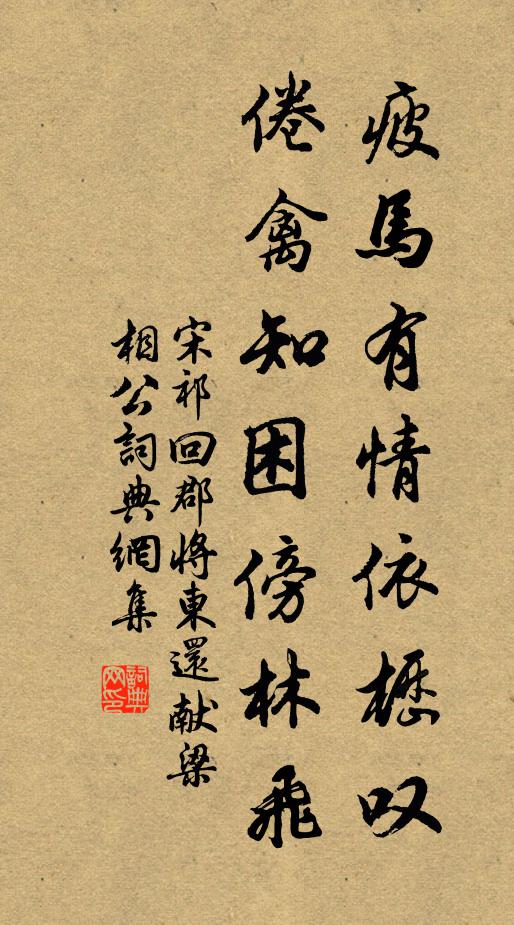 疲馬有情依櫪叹
倦禽知困傍林飛
宋祁回郡將東還献梁
相公詞典網集
詞典网印